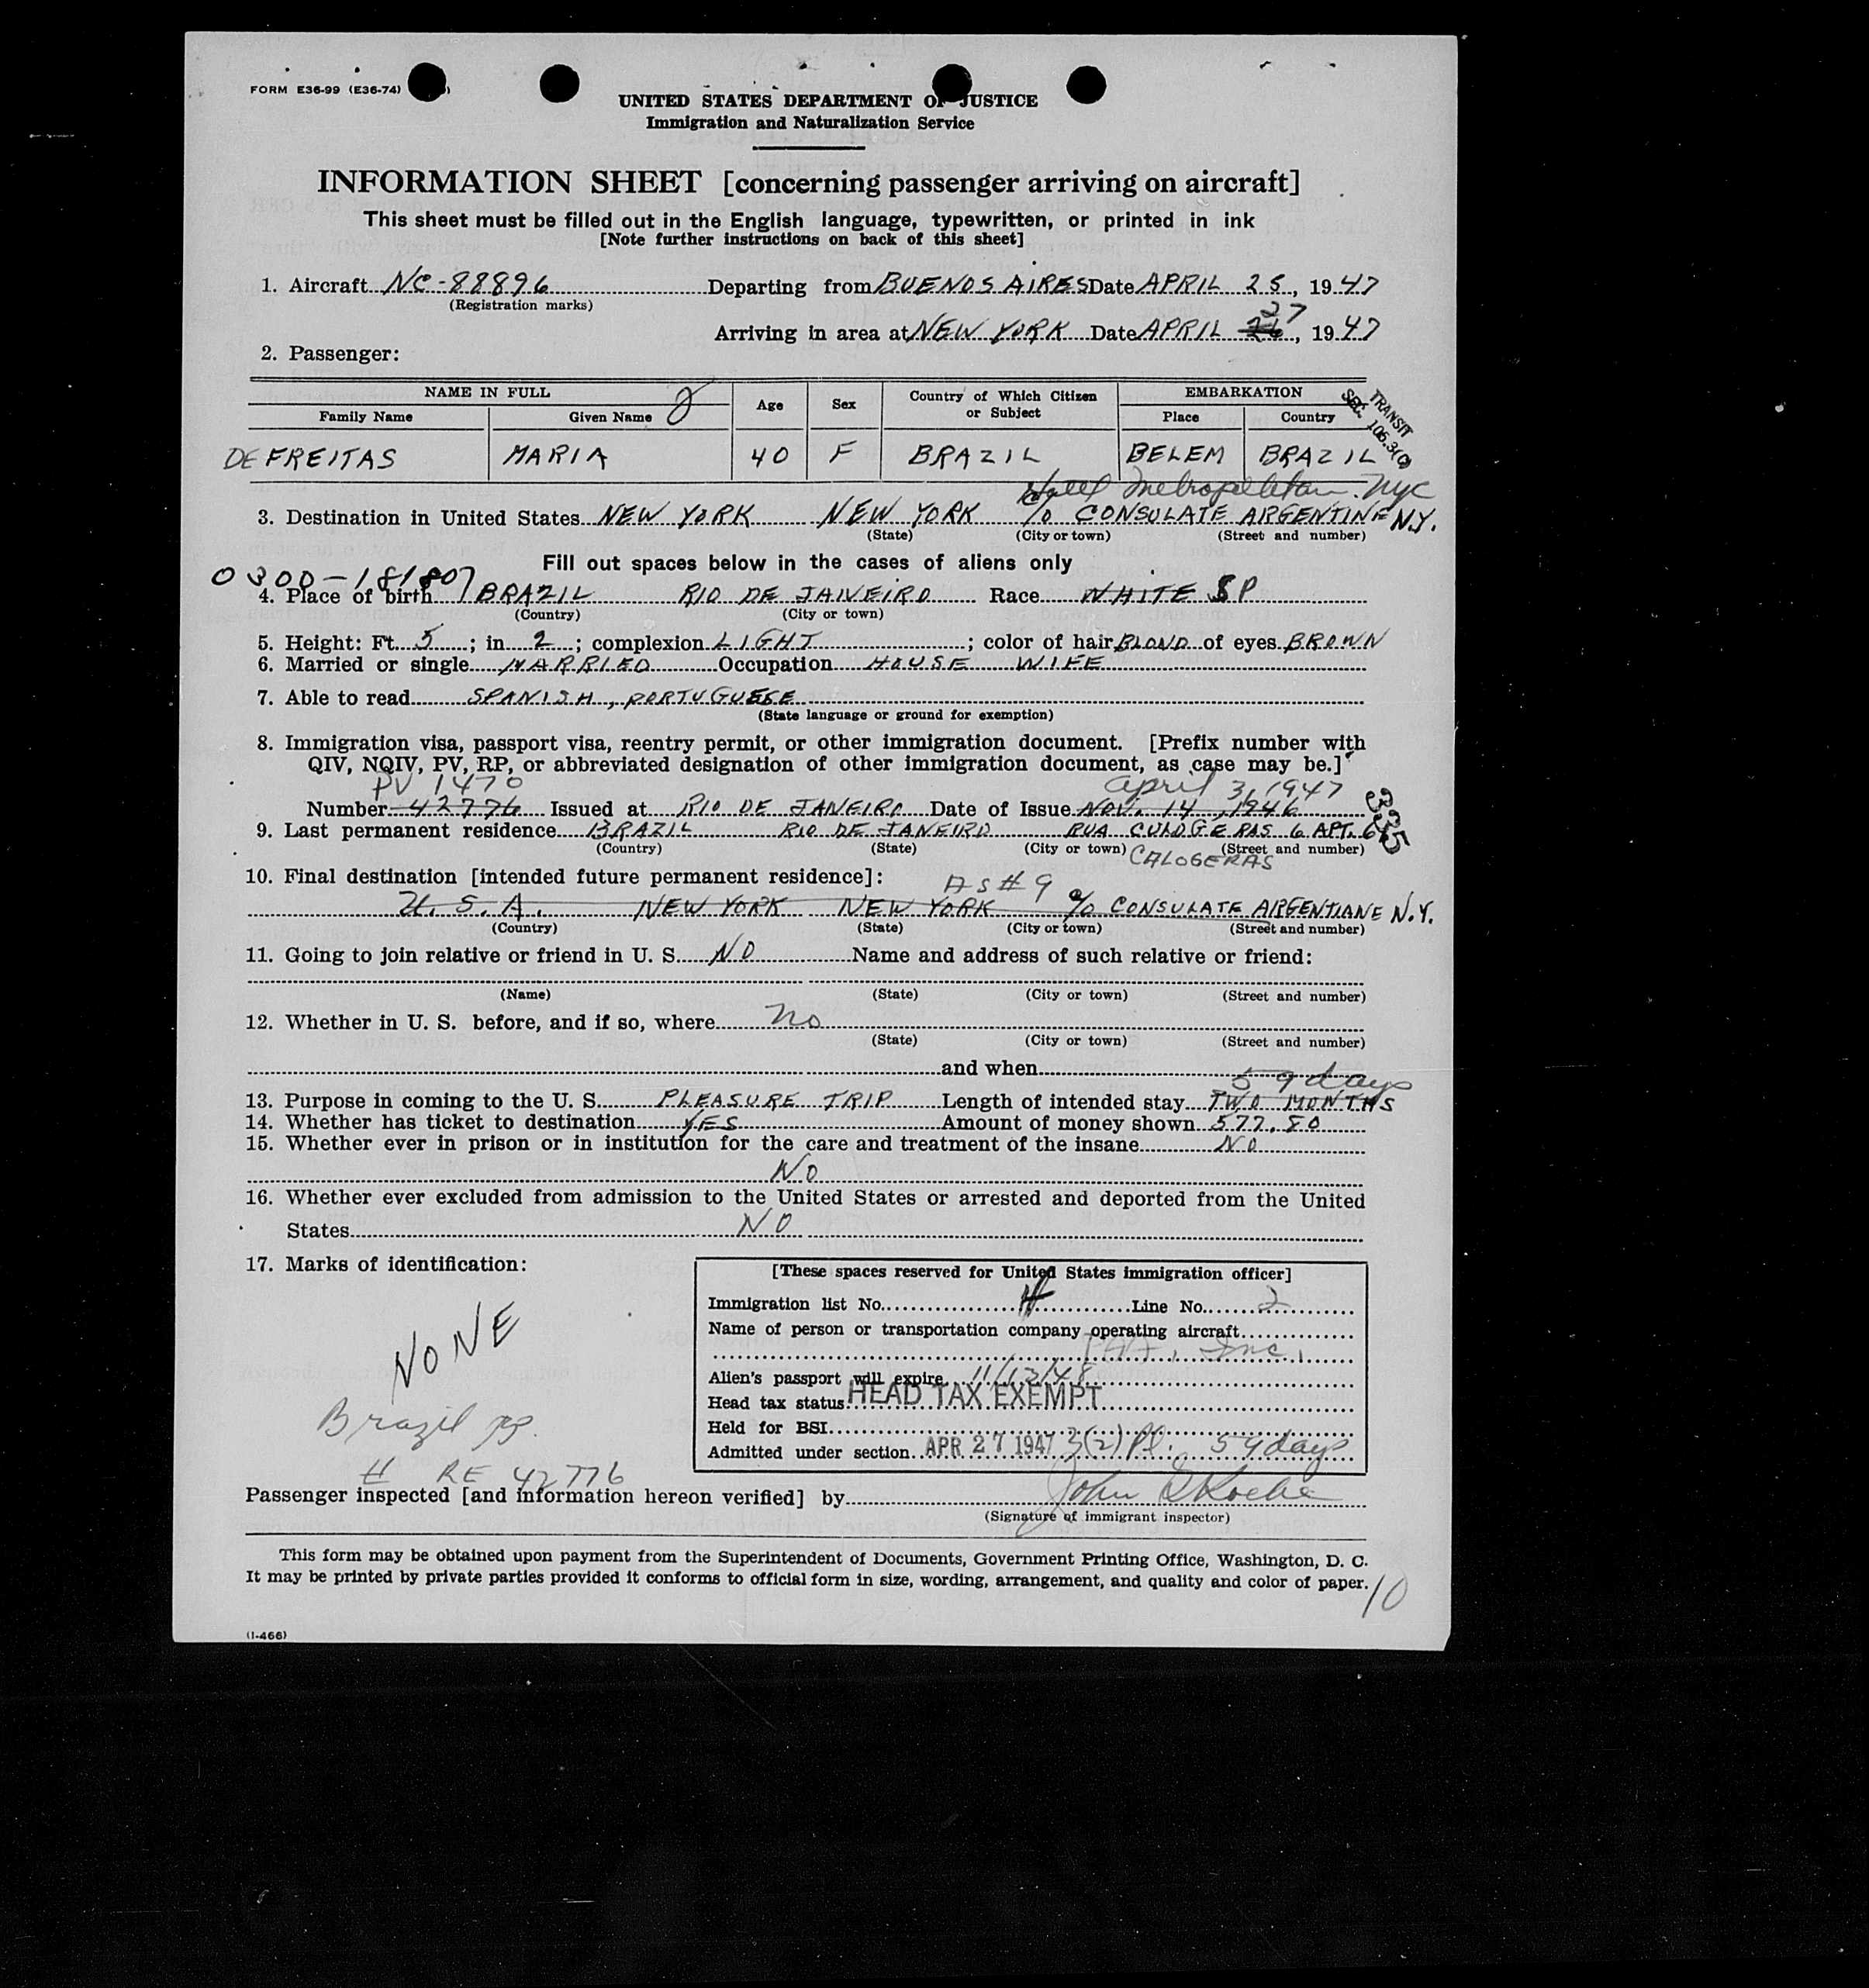 FORM E36-99 (E36-74)
UNITED STATES DEPARTMENT OF JUSTICE
Immigration and Naturalization Service
INFORMATION SHEET [concerning passenger arriving on aircraft]
This sheet must be filled out in the English language, typewritten, or printed in ink
[Note further instructions on back of this sheet]
1. Aircraft NC-88896 Departing from BUENOS AIRES Date APRIL 25, 1947
(Registration marks)
27
Arriving in area at NEW YORK Date APRIL 26, 1947
2. Passenger:
NAME IN FULL Age Sex Country of Which Citizen or Subject EMBARKATION
Family Name Given Name Place Country
TRANSIT
SEC. 106.3(C)
DE FREITAS MARIA 40 F BRAZIL BELEM BRAZIL
Hotel Metropolitan. NYC
3. Destination in United States NEW YORK NEW YORK c/o CONSULATE ARGENTINE N.Y.
(State) (City or town) (Street and number)
Fill out spaces below in the cases of aliens only
0300-181807
4. Place of birth BRAZIL RIO DE JANEIRO Race WHITE SP
(Country) (City or town)
5. Height: Ft. 5; in 2; complexion LIGHT; color of hair BLOND of eyes BROWN
6. Married or single MARRIED Occupation HOUSE WIFE
7. Able to read SPANISH, PORTUGUESE
(State language or ground for exemption)
8. Immigration visa, passport visa, reentry permit, or other immigration document. [Prefix number with
QIV, NQIV, PV, RP, or abbreviated designation of other immigration document, as case may be.]
PV 1470 April 3, 1947
Number 42776 Issued at RIO DE JANEIRO Date of Issue NOV. 14, 1946
335
9. Last permanent residence BRAZIL RIO DE JANEIRO RUA CULOGERAS 6 APT. 6
(Country) (State) (City or town) (Street and number)
CALOGERAS
10. Final destination [intended future permanent residence]:
As # 9
U.S.A. NEW YORK NEW YORK c/o CONSULATE ARGENTIANE N.Y.
(Country) (State) (City or town) (Street and number)
11. Going to join relative or friend in U. S. NO Name and address of such relative or friend:
(Name) (State) (City or town) (Street and number)
12. Whether in U. S. before, and if so, where no
(State) (City or town) (Street and number)
and when
59 days
13. Purpose in coming to the U. S. PLEASURE TRIP Length of intended stay TWO MONTHS
14. Whether has ticket to destination YES Amount of money shown 577.80
15. Whether ever in prison or in institution for the care and treatment of the insane NO
NO
16. Whether ever excluded from admission to the United States or arrested and deported from the United
States NO
17. Marks of identification:
NONE
Brazil pp.
# RE 42776
[These spaces reserved for United States immigration officer]
Immigration list No. Line No. 2
Name of person or transportation company operating aircraft
Inc.
Alien's passport will expire 11/13/48
Head tax status HEAD TAX EXEMPT
Held for BSI
Admitted under section APR 27 1947 3(2) Pl. 59 days
Passenger inspected [and information hereon verified] by John
(Signature of immigrant inspector)
This form may be obtained upon payment from the Superintendent of Documents, Government Printing Office, Washington, D. C.
It may be printed by private parties provided it conforms to official form in size, wording, arrangement, and quality and color of paper.
10
(I-466)